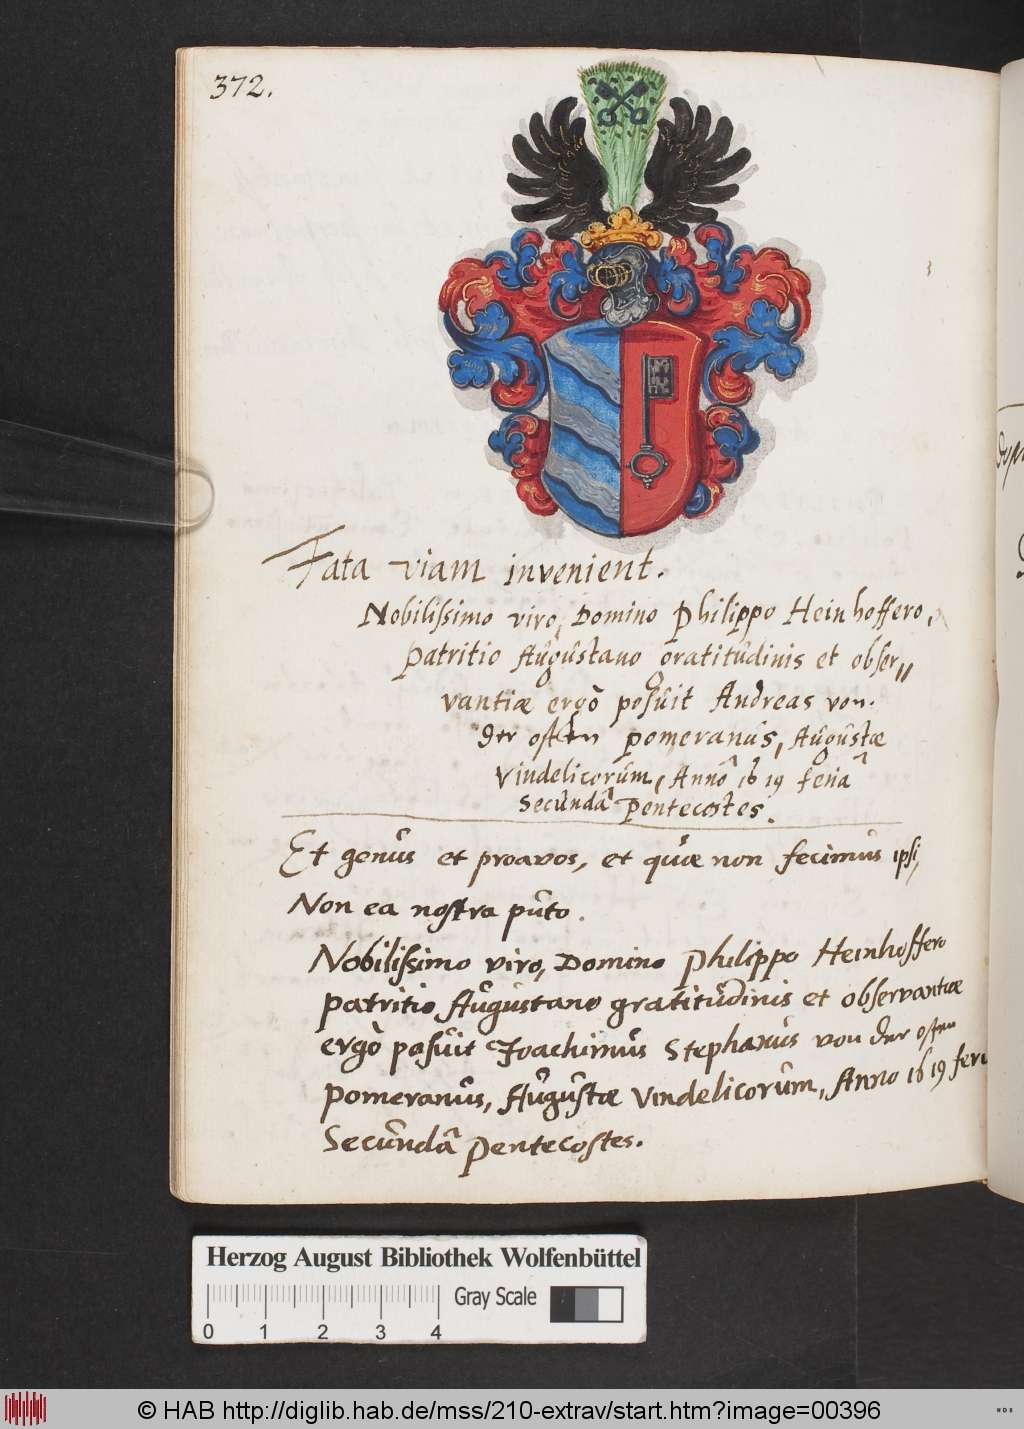 372.
Fata viam invenient.
Nobilissimo viro, Domino Philippo Heinhoffero,
Patritio Augustano gratitudinis et obser〃
vantiæ ergò posuit Andreas von
der osten Pomeranus, Augustæ
Vindelicorum, Anno 1619 feriâ
Secundâ Pentecostes.
Et genus et proavos, et quæ non fecimus ipsi,
Non ea nostra puto.
Nobilissimo viro, Domino Philippo Heinhoffero
Patritio Augustano gratitudinis et observantiæ
ergò posuit Joachimus Stephanus von der osten
Pomeranus, Augustæ Vindelicorum, Anno 1619 feri
Secundâ Pentecostes.
Herzog August Bibliothek Wolfenbüttel
Gray Scale
0 1 2 3 4
© HAB http://diglib.hab.de/mss/210-extrav/start.htm?image=00396